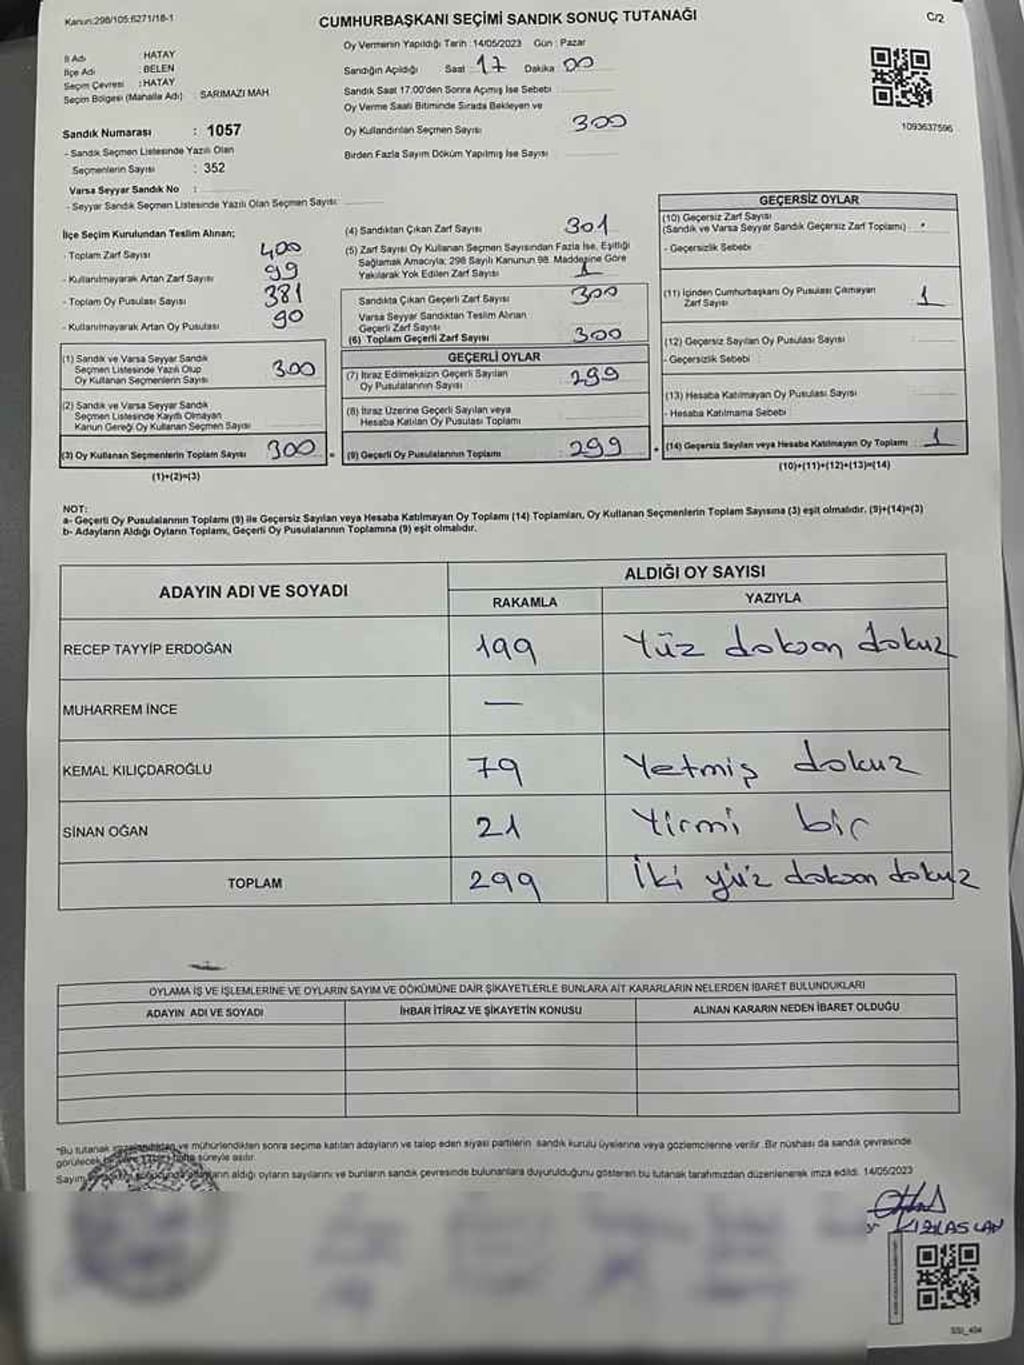 Kanun:298/105:6271/18-1
CUMHURBAŞKANI SEÇİMİ SANDIK SONUÇ TUTANAĞI
C/2
İl Adı : HATAY
İlçe Adı : BELEN
Seçim Çevresi : HATAY
Seçim Bölgesi (Mahalle Adı) : SARIMAZI MAH
Oy Vermenin Yapıldığı Tarih : 14/05/2023 Gün : Pazar
Sandığın Açıldığı Saat : 17 Dakika : 00
Sandık Saat 17.00'den Sonra Açımış İse Sebebi
Oy Verme Saati Bitiminde Sırada Bekleyen ve
Oy Kullandırılan Seçmen Sayısı 300
Birden Fazla Sayım Döküm Yapılmış İse Sayısı
1093637596
Sandık Numarası : 1057
- Sandık Seçmen Listesinde Yazılı Olan
Seçmenlerin Sayısı : 352
Varsa Seyyar Sandık No :
- Seyyar Sandık Seçmen Listesinde Yazılı Olan Seçmen Sayısı:
İlçe Seçim Kurulundan Teslim Alınan;
- Toplam Zarf Sayısı 400
- Kullanılmayarak Artan Zarf Sayısı 99
- Toplam Oy Pusulası Sayısı 381
- Kullanılmayarak Artan Oy Pusulası 90
(1) Sandık ve Varsa Seyyar Sandık
Seçmen Listesinde Yazılı Olup
Oy Kullanan Seçmenlerin Sayısı 300
(2) Sandık ve Varsa Seyyar Sandık
Seçmen Listesinde Kayıtlı Olmayan
Kanun Gereği Oy Kullanan Seçmen Sayısı
(3) Oy Kullanan Seçmenlerin Toplam Sayısı 300
(1)+(2)=(3)
(4) Sandıktan Çıkan Zarf Sayısı 301
(5) Zarf Sayısı Oy Kullanan Seçmen Sayısından Fazla İse, Eşitliği
Sağlamak Amacıyla; 298 Sayılı Kanunun 98. Maddesine Göre
Yakılarak Yok Edilen Zarf Sayısı 1
Sandıkta Çıkan Geçerli Zarf Sayısı 300
Varsa Seyyar Sandıktan Teslim Alınan
Geçerli Zarf Sayısı
(6) Toplam Geçerli Zarf Sayısı 300
GEÇERLİ OYLAR
(7) İtiraz Edilmeksizin Geçerli Sayılan
Oy Pusulalarının Sayısı 299
(8) İtiraz Üzerine Geçerli Sayılan veya
Hesaba Katılan Oy Pusulası Toplamı
(9) Geçerli Oy Pusulalarının Toplamı 299
GEÇERSİZ OYLAR
(10) Geçersiz Zarf Sayısı
(Sandık ve Varsa Seyyar Sandık Geçersiz Zarf Toplamı)
- Geçersizlik Sebebi
(11) İçinden Cumhurbaşkanı Oy Pusulası Çıkmayan
Zarf Sayısı 1
(12) Geçersiz Sayılan Oy Pusulası Sayısı
- Geçersizlik Sebebi
(13) Hesaba Katılmayan Oy Pusulası Sayısı
- Hesaba Katılmama Sebebi
(14) Geçersiz Sayılan veya Hesaba Katılmayan Oy Toplamı 1
(10)+(11)+(12)+(13)=(14)
NOT:
a- Geçerli Oy Pusulalarının Toplamı (9) ile Geçersiz Sayılan veya Hesaba Katılmayan Oy Toplamı (14) Toplamları, Oy Kullanan Seçmenlerin Toplam Sayısına (3) eşit olmalıdır. (9)+(14)=(3)
b- Adayların Aldığı Oyların Toplamı, Geçerli Oy Pusulalarının Toplamına (9) eşit olmalıdır.
ADAYIN ADI VE SOYADI
ALDIĞI OY SAYISI
RAKAMLA YAZIYLA
RECEP TAYYİP ERDOĞAN 199 Yüz doksan dokuz
MUHARREM İNCE —
KEMAL KILIÇDAROĞLU 79 Yetmiş dokuz
SİNAN OĞAN 21 Yirmi bir
TOPLAM 299 İki yüz doksan dokuz
OYLAMA İŞ VE İŞLEMLERİNE VE OYLARIN SAYIM VE DÖKÜMÜNE DAİR ŞİKAYETLERLE BUNLARA AİT KARARLARIN NELERDEN İBARET BULUNDUKLARI
ADAYIN ADI VE SOYADI İHBAR İTİRAZ VE ŞİKAYETİN KONUSU ALINAN KARARIN NEDEN İBARET OLDUĞU
*Bu tutanak ve mühürlendikten sonra seçime katılan adayların ve talep eden siyasi partilerin sandık kurulu üyelerine veya gözlemcilerine verilir. Bir nüshası da sandık çevresinde
görülecek süreyle asılır.
Sayım aldığı oyların sayılarını ve bunların sandık çevresinde bulunanlara duyurulduğunu gösteren bu tutanak tarafımızdan düzenlenerek imza edildi. 14/05/2023
KIZILASLAN